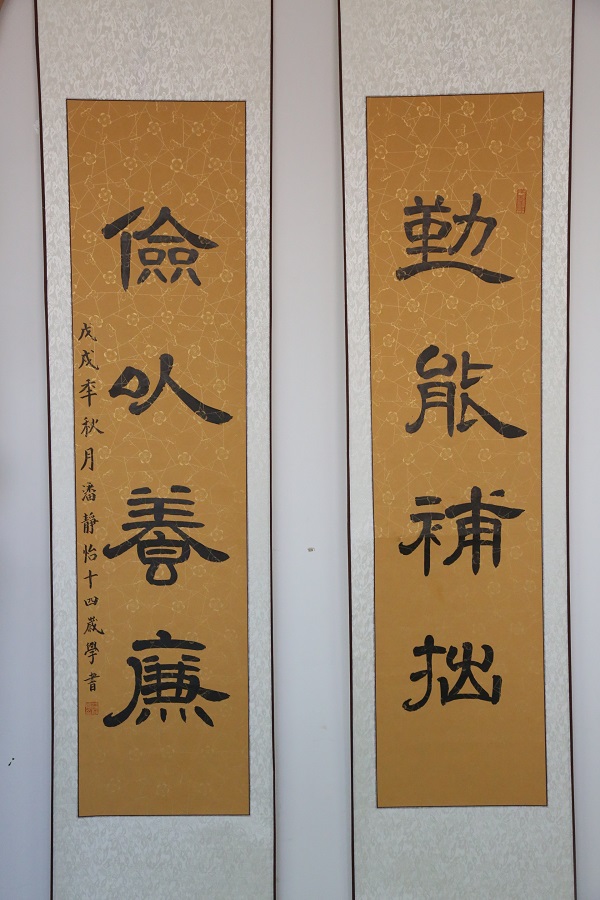 勤能補拙
儉以養廉
戊戌季秋月潘靜怡十四歲學書